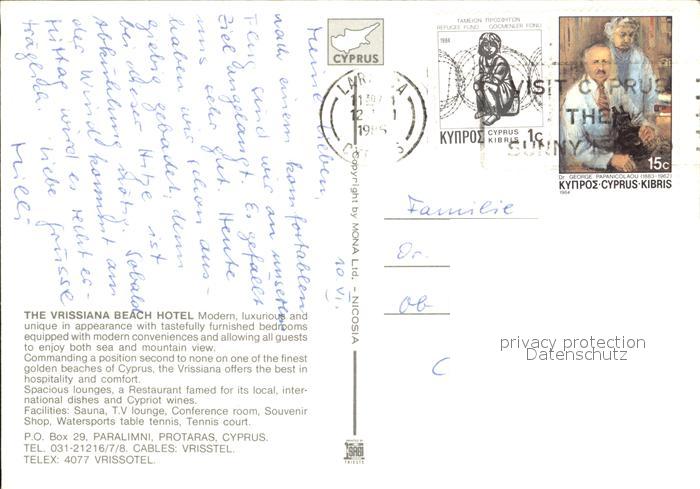 Meine Lieben,
nach einem komfortablen
Flug sind wir an unserem
Ziel angelangt. Es gefällt
uns sehr gut. Heute
haben wir schon aus-
giebig gebadet, denn
bei dieser Hitze ist
Abkühlung nötig. Sobald
der Wind kommt am
Mittag wird es recht er-
träglich. Liebe Grüsse
10. VI.
CYPRUS
Copyright by MONA Ltd. - NICOSIA
ΤΑΜΕΙΟΝ ΠΡΟΣΦΥΓΩΝ
REFUGEE FUND GÖÇMENLER FONU
1984
ΚΥΠΡΟΣ CYPRUS KIBRIS 1c
VISIT CYPRUS
THE
SUNNY
15c
Dr. GEORGE PAPANICOLAOU (1883-1962)
ΚΥΠΡΟΣ·CYPRUS·KIBRIS
1984
Familie
Dr.
privacy protection
Datenschutz
THE VRISSIANA BEACH HOTEL Modern, luxurious and
unique in appearance with tastefully furnished bedrooms
equipped with modern conveniences and allowing all guests
to enjoy both sea and mountain view.
Commanding a position second to none on one of the finest
golden beaches of Cyprus, the Vrissiana offers the best in
hospitality and comfort.
Spacious lounges, a Restaurant famed for its local, inter-
national dishes and Cypriot wines.
Facilities: Sauna, T.V lounge, Conference room, Souvenir
Shop, Watersports table tennis, Tennis court.
P.O. Box 29, PARALIMNI, PROTARAS, CYPRUS.
TEL. 031-21216/7/8. CABLES: VRISSTEL.
TELEX: 4077 VRISSOTEL.
TRIESTE